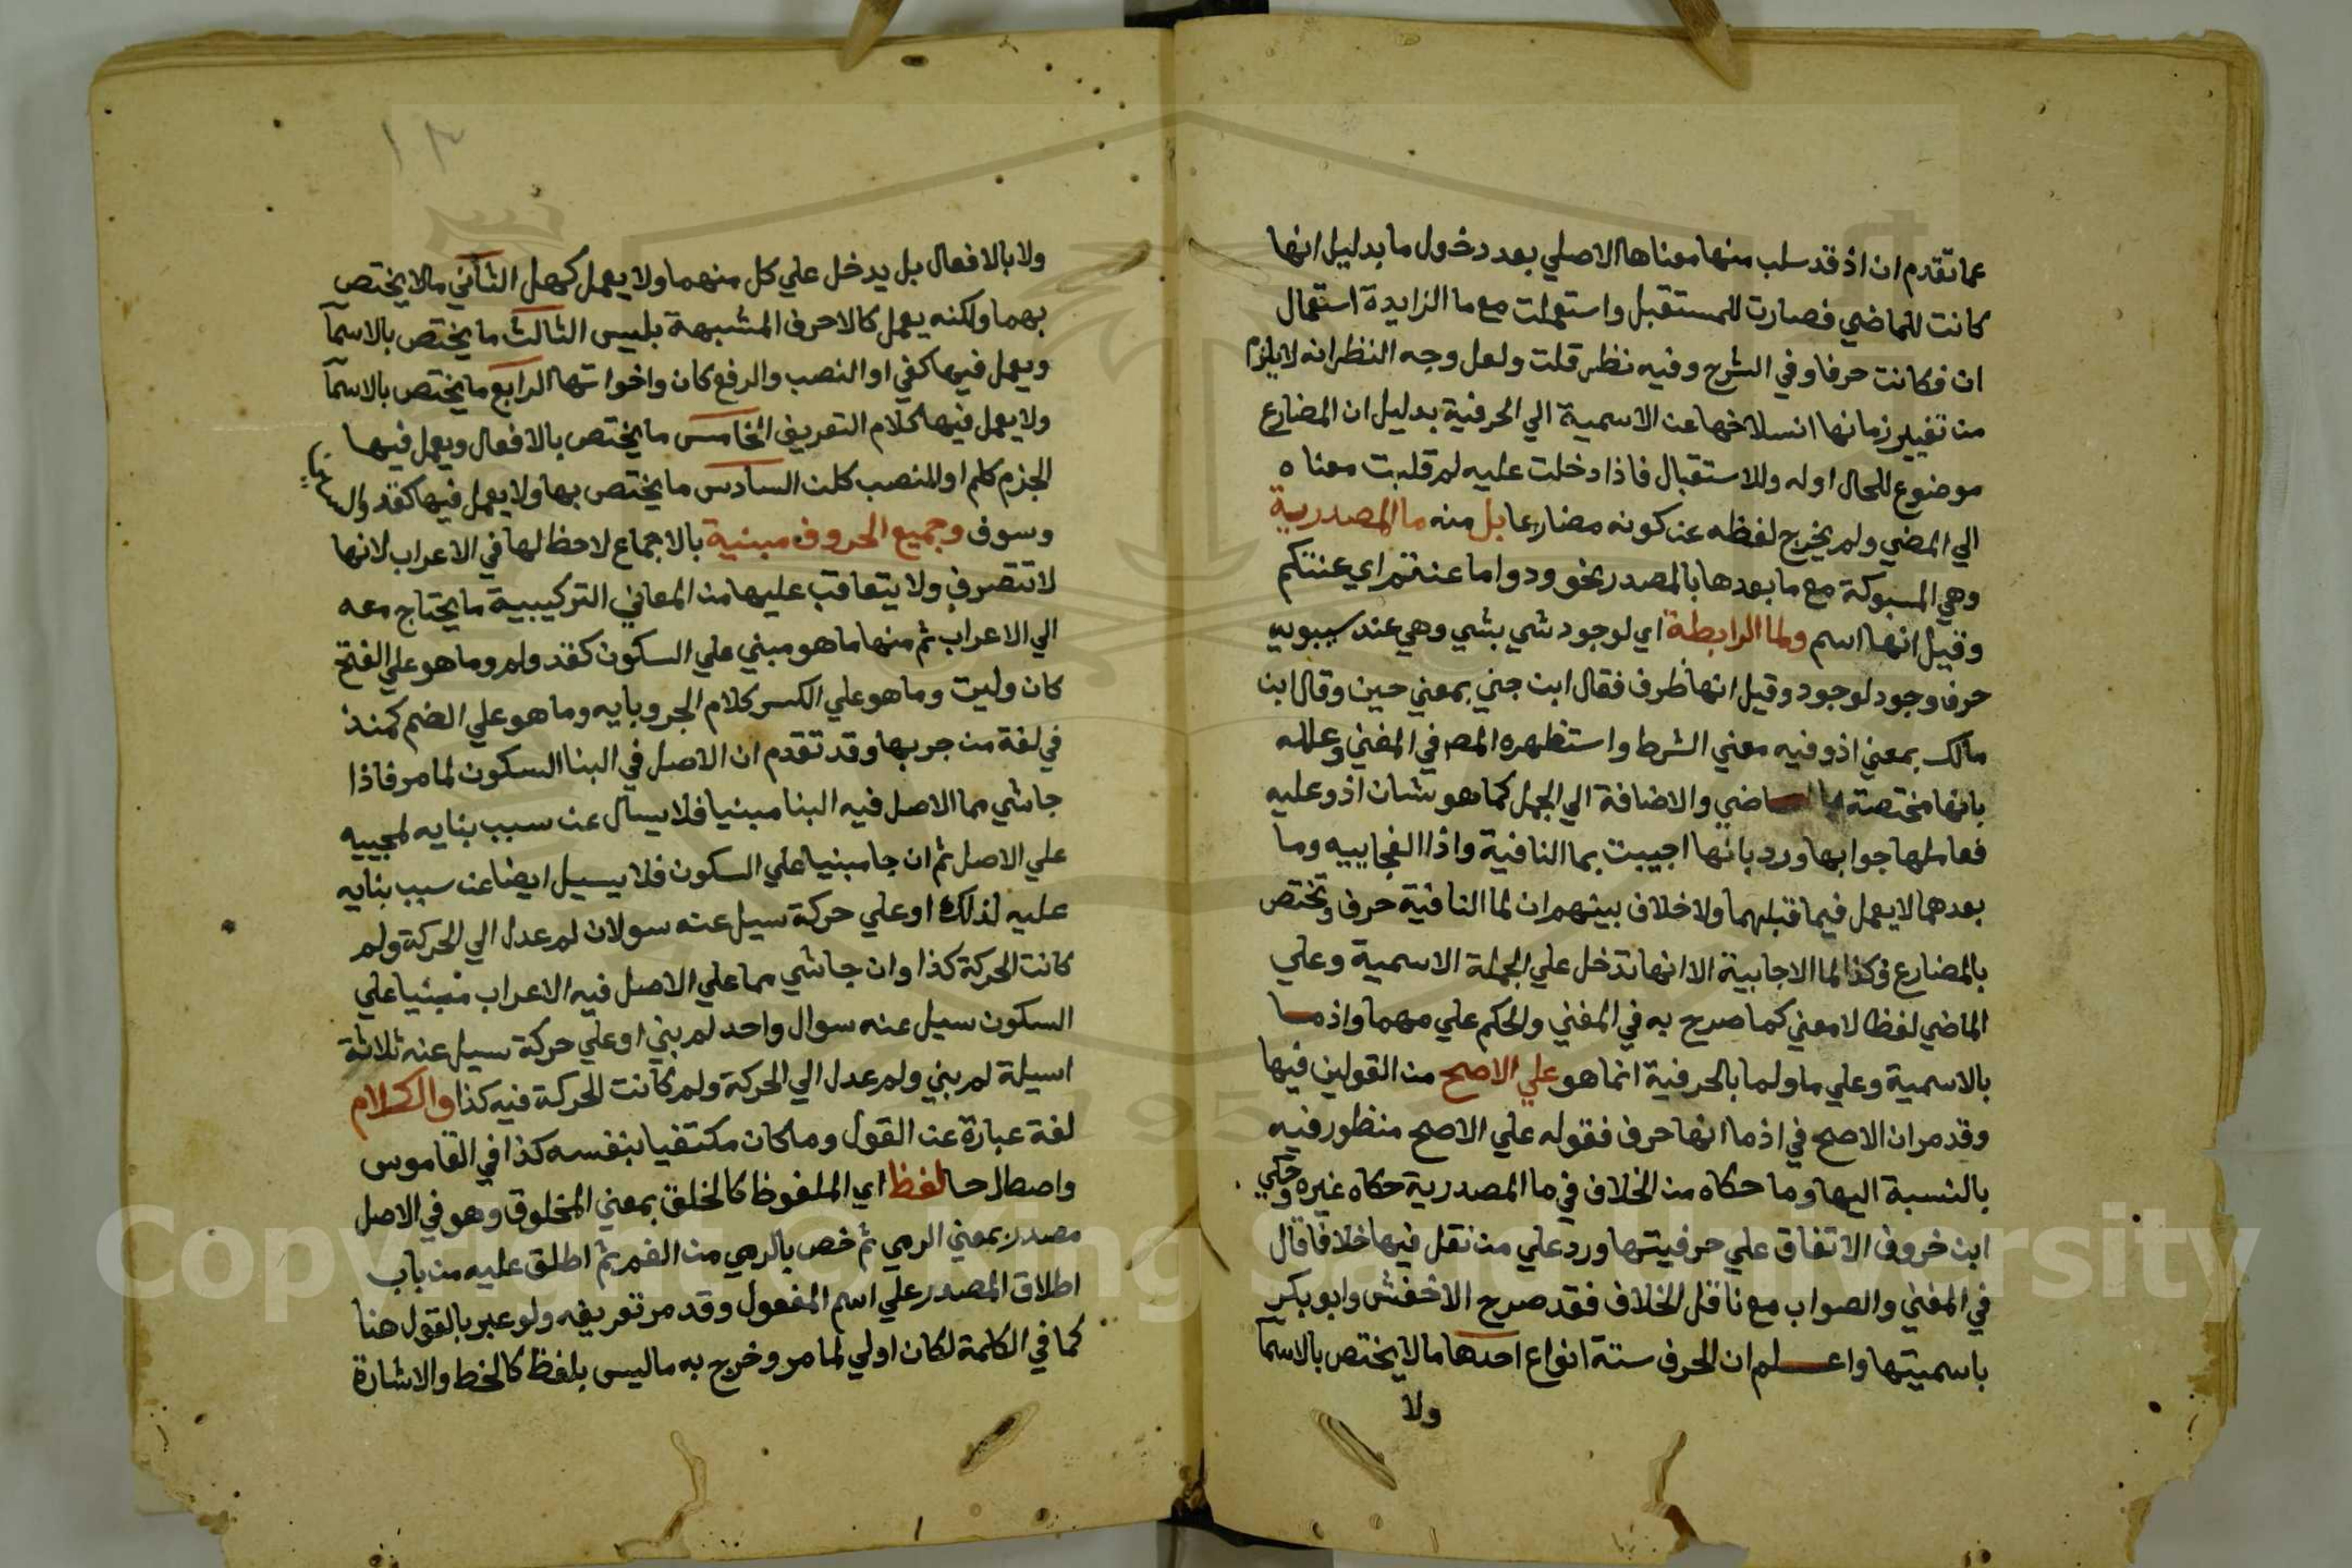 عما تقدم ان اذ قد سلب منها معناها الاصلي بعد دخول ما بدليل انها
كانت للماضي فصارت للمستقبل واستعملت مع ما الزايدة استعمال
ان فكانت حرفا وفي الشرح وفيه نظر قلت ولعل وجه النظر انه لا يلزم
من تغيير زمانها انسلاخها عن الاسمية الي الحرفية بدليل ان المضارع
موضوع للحال اوله وللاستقبال فاذا دخلت عليه لم قلبت معناه
الي المضي ولم يخرج لفظه عن كونه مضارعا بل منه ما المصدرية
وهي المسبوكة مع ما بعدها بالمصدر نحو ودوا ما عنتم اي عنتكم
وقيل انها اسم ولما الرابطة اي لوجود شي بشي وهي عند سيبويه
حرف وجود لوجود وقيل انها ظرف فقال ابن جني بمعني حين وقال ابن
مالك بمعني اذ وفيه معني الشرط واستظهره المص في المغني وعلله
بانها مختصة بالماضي والاضافة الي الجمل كما هو شان اذ وعليه
فعاملها جوابها ورد بانها اجيبت بما النافية واذا الفجاييه وما
بعدهما لا يعمل فيما قبلهما ولا خلاف بينهم ان لما النافية حرف وتختص
بالمضارع وكذا لما الاجابية الا انها تدخل علي الجملة الاسمية وعلي
الماضي لفظا لا معني كما صرح به في المغني والحكم علي مهما واذ ما
بالاسمية وعلي ما ولما بالحرفية انما هو علي الاصح من القولين فيها
وقد مر ان الاصح في اذ ما انها حرف فقوله علي الاصح منظور فيه
بالنسبة اليها وما حكاه من الخلاف في ما المصدرية حكاه غيره وحكي
ابن خروف الاتفاق علي حرفيتها ورد علي من نقل فيها خلافا قال
في المغني والصواب مع ناقل الخلاف فقد صرح الاخفش وابو بكر
باسميتها واعلم ان الحرف ستة انواع احدها ما لا يختص بالاسما
ولا
١٣
ولا بالافعال بل يدخل علي كل منهما ولا يعمل كهل الثاني ما لا يختص
بهما ولكنه يعمل كالاحرف المشبهة بليس الثالث ما يختص بالاسما
ويعمل فيها كفي او النصب والرفع كان واخواتها الرابع ما يختص بالاسما
ولا يعمل فيها كلام التعريف الخامس ما يختص بالافعال ويعمل فيها
الجزم كلم او النصب كلن السادس ما يختص بها ولا يعمل فيها كقد وال
وسوف وجميع الحروف مبنية بالاجماع لا حظ لها في الاعراب لانها
لا تتصرف ولا يتعاقب عليها من المعاني التركيبية ما يحتاج معه
الي الاعراب ثم منها ما هو مبني علي السكون كقد ولم وما هو علي الفتح
كان وليت وما هو علي الكسر كلام الجر وبايه وما هو علي الضم كمنذ
في لغة من جر بها وقد تقدم ان الاصل في البنا السكون لما مر فاذا
جا شي مما الاصل فيه البنا مبنيا فلا يسال عن سبب بنايه لمجييه
علي الاصل ثم ان جا مبنيا علي السكون فلا يسيل ايضا عن سبب بنايه
عليه لذلك او علي حركة سيل عنه سولان لم عدل الي الحركة ولم
كانت الحركة كذا وان جا شي مما علي الاصل فيه الاعراب مبنيا علي
السكون سيل عنه سوال واحد لم بني او علي حركة سيل عنه ثلاثة
اسيلة لم بني ولم عدل الي الحركة ولم كانت الحركة فيه كذا والكلام
لغة عبارة عن القول وما كان مكتفيا بنفسه كذا في القاموس
واصطلاحا لفظ اي الملفوظ كالخلق بمعني المخلوق وهو في الاصل
مصدر بمعني الرمي ثم خص بالرمي من الفم ثم اطلق عليه من باب
اطلاق المصدر علي اسم المفعول وقد مر تعريفه ولو عبر بالقول هنا
كما في الكلمة لكان اولي لما مر وخرج به ما ليس بلفظ كالخط والاشارة
Copyright © King Saud University
1957